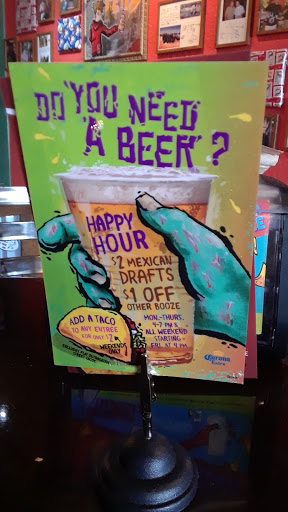 DO YOU NEED
A BEER?
HAPPY
HOUR
$2 MEXICAN
DRAFTS
$1 OFF
OTHER BOOZE
MON.-THURS.
4-7 PM &
ALL WEEKEND
STARTING
FRI. AT 4 PM
ADD A TACO
TO ANY ENTREE
FOR ONLY $2
WEEKENDS
ONLY
Corona
Extra